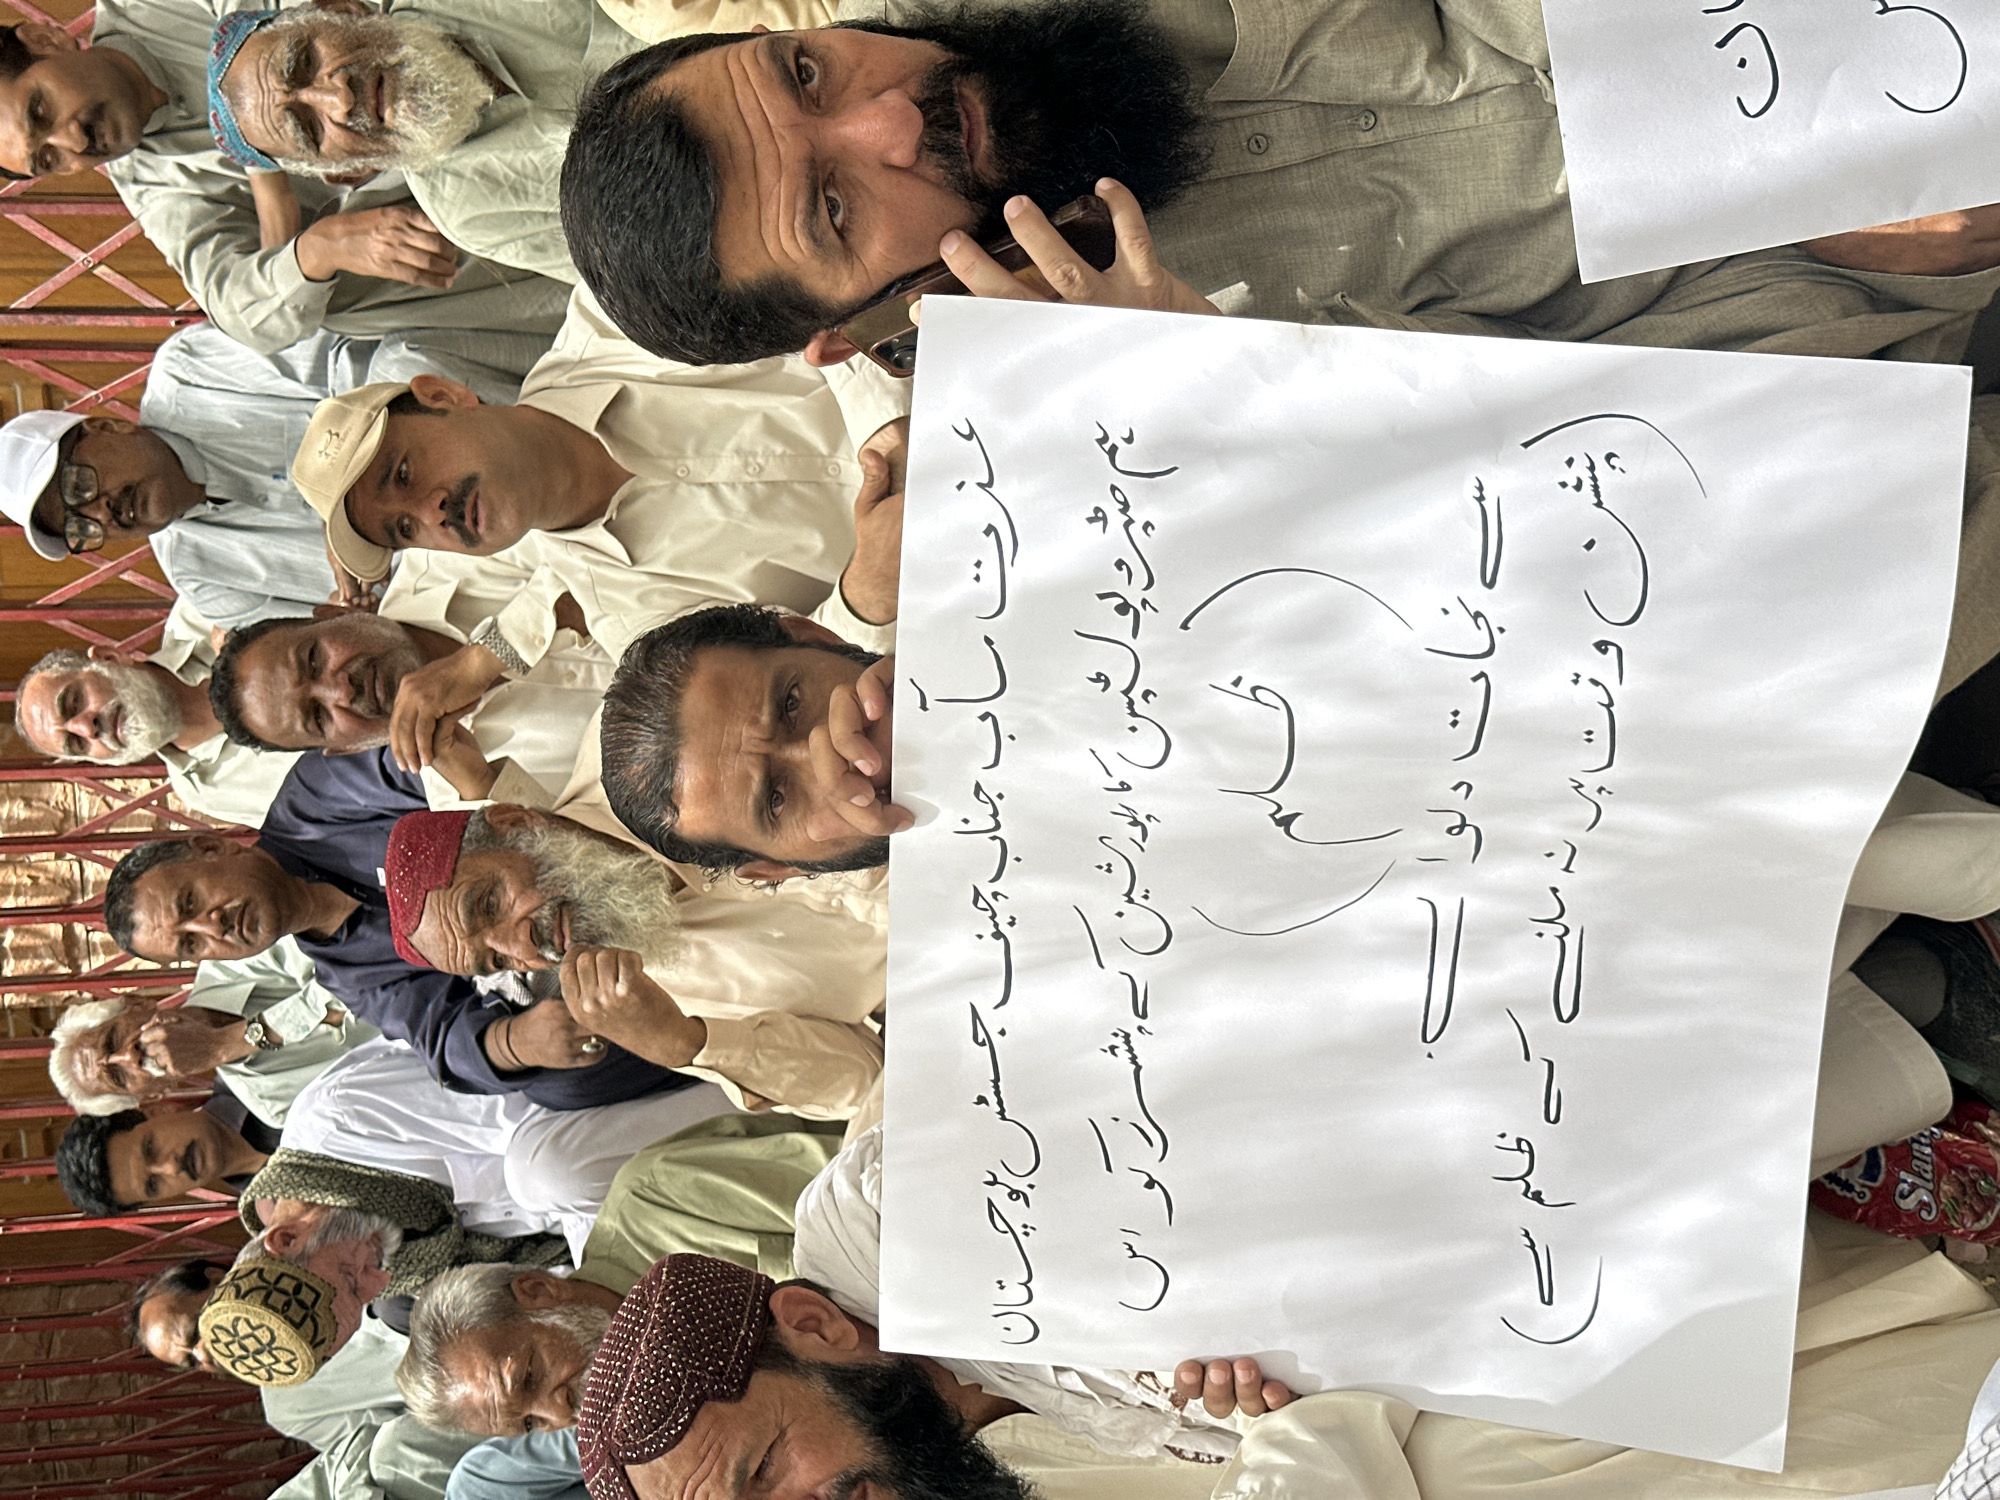 عزت مآب جناب چیف جسٹس بلوچستان
ہم میٹروپولیٹین کارپوریشن کے پنشنرز کو اس
(ظلم)
سے نجات دلوائے
(پنشن وقت پر نہ ملنے کے ظلم سے)
ان
Shang